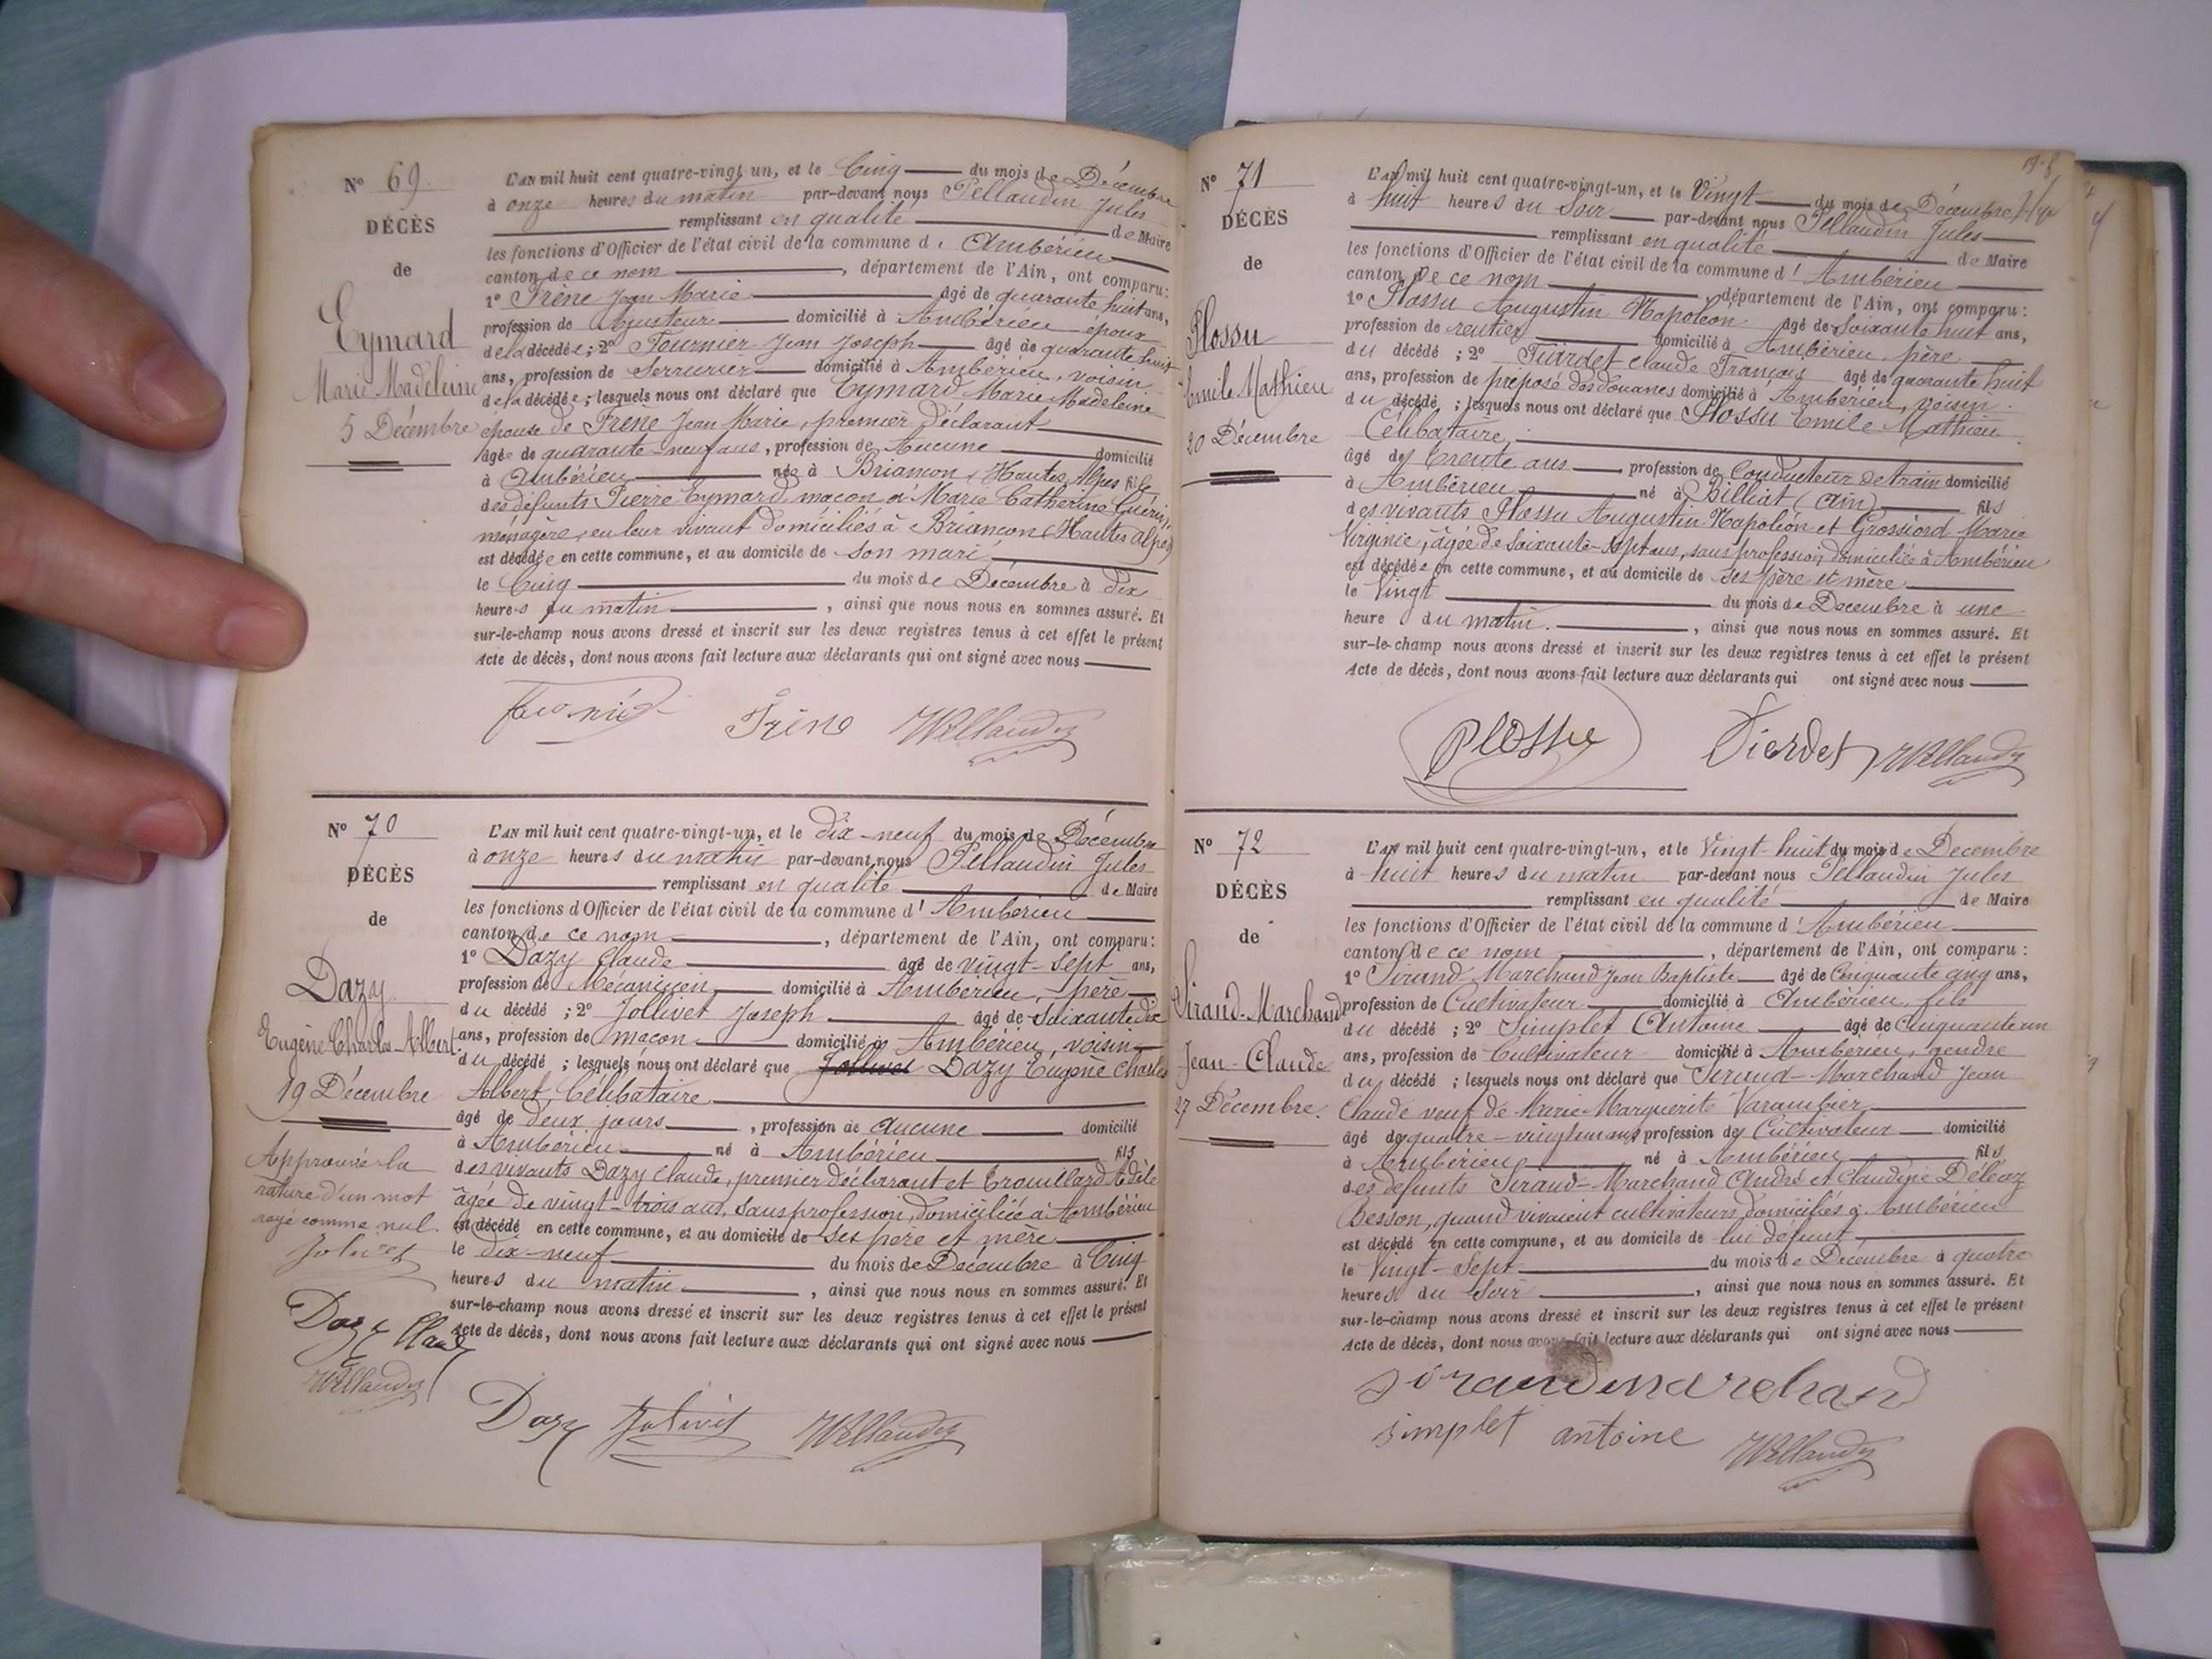 Nº 69.
DÉCÈS
de
Eymard
Marie Madeleine
5 Décembre
L'AN mil huit cent quatre-vingt un, et le Cinq du mois de Décembre
à onze heures du matin par-devant nous Pellaudin Jules
remplissant en qualité de Maire
les fonctions d'Officier de l'état civil de la commune d' Ambérieu
canton de ce nom, département de l'Ain, ont comparu:
1º Frène Jean Marie âgé de quarante huit ans,
profession de Ajusteur domicilié à Ambérieu époux
de la décédée; 2º Fournier Jean Joseph âgé de quarante huit
ans, profession de Serrurier domicilié à Ambérieu, voisin
de la décédée; lesquels nous ont déclaré que Eymard Marie Madeleine
épouse de Frène Jean Marie, premier déclarant
âgée de quarante-neuf ans, profession de Aucune domicilié
à Ambérieu née à Briançon (Hautes Alpes fille
des défunts Pierre Eymard, maçon et Marie Catherine Guérin,
ménagère, en leur vivant domiciliés à Briançon (Hautes Alpes)
est décédée en cette commune, et au domicile de son mari
le Cinq du mois de Décembre à dix
heures du matin, ainsi que nous nous en sommes assuré. Et
sur-le-champ nous avons dressé et inscrit sur les deux registres tenus à cet effet le présent
Acte de décès, dont nous avons fait lecture aux déclarants qui ont signé avec nous
Frène
Nº 70
DÉCÈS
de
Dazy
Eugène Charles Albert
19 Décembre
Approuvé la
rature d'un mot
rayé comme nul.
Jolivet
Dazy Claude
L'AN mil huit cent quatre-vingt-un, et le dix-neuf du mois de Décembre
à onze heures du matin par-devant nous Pellaudin Jules
remplissant en qualité de Maire
les fonctions d'Officier de l'état civil de la commune d' Ambérieu
canton de ce nom, département de l'Ain, ont comparu:
1º Dazy Claude âgé de vingt-sept ans,
profession de Mécanicien domicilié à Ambérieu, père
du décédé; 2º Jollivet Joseph âgé de soixante dix
ans, profession de maçon domicilié à Ambérieu, voisin
du décédé; lesquels nous ont déclaré que Jollivet Dazy Eugène Charles
Albert, Célibataire
âgé de deux jours, profession de aucune domicilié
à Ambérieu né à Ambérieu fils
des vivants Dazy Claude, premier déclarant et Trouillard Adèle
âgée de vingt-trois ans, sans profession, domiciliée à Ambérieu
est décédé en cette commune, et au domicile de ses père et mère
le dix-neuf du mois de Décembre à Cinq
heures du matin, ainsi que nous nous en sommes assuré. Et
sur-le-champ nous avons dressé et inscrit sur les deux registres tenus à cet effet le présent
Acte de décès, dont nous avons fait lecture aux déclarants qui ont signé avec nous
Dazy Jolivet
Nº 71
DÉCÈS
de
Plossu
Emile Mathieu
20 Décembre
L'AN mil huit cent quatre-vingt-un, et le Vingt du mois de Décembre
à huit heures du Soir par-devant nous Pellaudin Jules
remplissant en qualité de Maire
les fonctions d'Officier de l'état civil de la commune d' Ambérieu
canton de ce nom, département de l'Ain, ont comparu:
1º Plossu Augustin Napoléon âgé de Soixante huit ans,
profession de rentier domicilié à Ambérieu, père
du décédé; 2º Tiardet Claude François âgé de quarante huit
ans, profession de préposé des douanes domicilié à Ambérieu, voisin
du décédé; lesquels nous ont déclaré que Plossu Emile Mathieu
Célibataire,
âgé de trente ans profession de Conducteur de train domicilié
à Ambérieu né à Billiat (Ain) fils
des vivants Plossu Augustin Napoléon et Grossiord Marie
Virginie, âgée de soixante-sept ans, sans profession, domiciliés à Ambérieu
est décédé en cette commune, et au domicile de ses père et mère
le Vingt du mois de Décembre à une
heure du matin., ainsi que nous nous en sommes assuré. Et
sur-le-champ nous avons dressé et inscrit sur les deux registres tenus à cet effet le présent
Acte de décès, dont nous avons fait lecture aux déclarants qui ont signé avec nous
Plossu
Nº 72
DÉCÈS
de
Sirand-Marchand
Jean-Claude
27 Décembre.
L'AN mil huit cent quatre-vingt-un, et le Vingt-huit du mois de Décembre
à huit heures du matin par-devant nous Pellaudin Jules
remplissant en qualité de Maire
les fonctions d'Officier de l'état civil de la commune d' Ambérieu
canton de ce nom, département de l'Ain, ont comparu:
1º Sirand-Marchand Jean Baptiste âgé de Cinquante cinq ans,
profession de Cultivateur domicilié à Ambérieu, fils
du décédé; 2º Simplet Antoine âgé de Cinquante un
ans, profession de Cultivateur domicilié à Ambérieu, gendre
du décédé; lesquels nous ont déclaré que Sirand-Marchand Jean
Claude veuf de Marie Marguerite Varambier
âgé de quatre-vingt un ans profession de Cultivateur domicilié
à Ambérieu né à Ambérieu fils
des défunts Sirand-Marchand André et Claudine Déléaz
Besson, quand vivaient cultivateurs domiciliés à Ambérieu
est décédé en cette commune, et au domicile de lui défunt
le Vingt-Sept du mois de Décembre à quatre
heures du Soir, ainsi que nous nous en sommes assuré. Et
sur-le-champ nous avons dressé et inscrit sur les deux registres tenus à cet effet le présent
Acte de décès, dont nous avons fait lecture aux déclarants qui ont signé avec nous
sirand marchand
simplet antoine